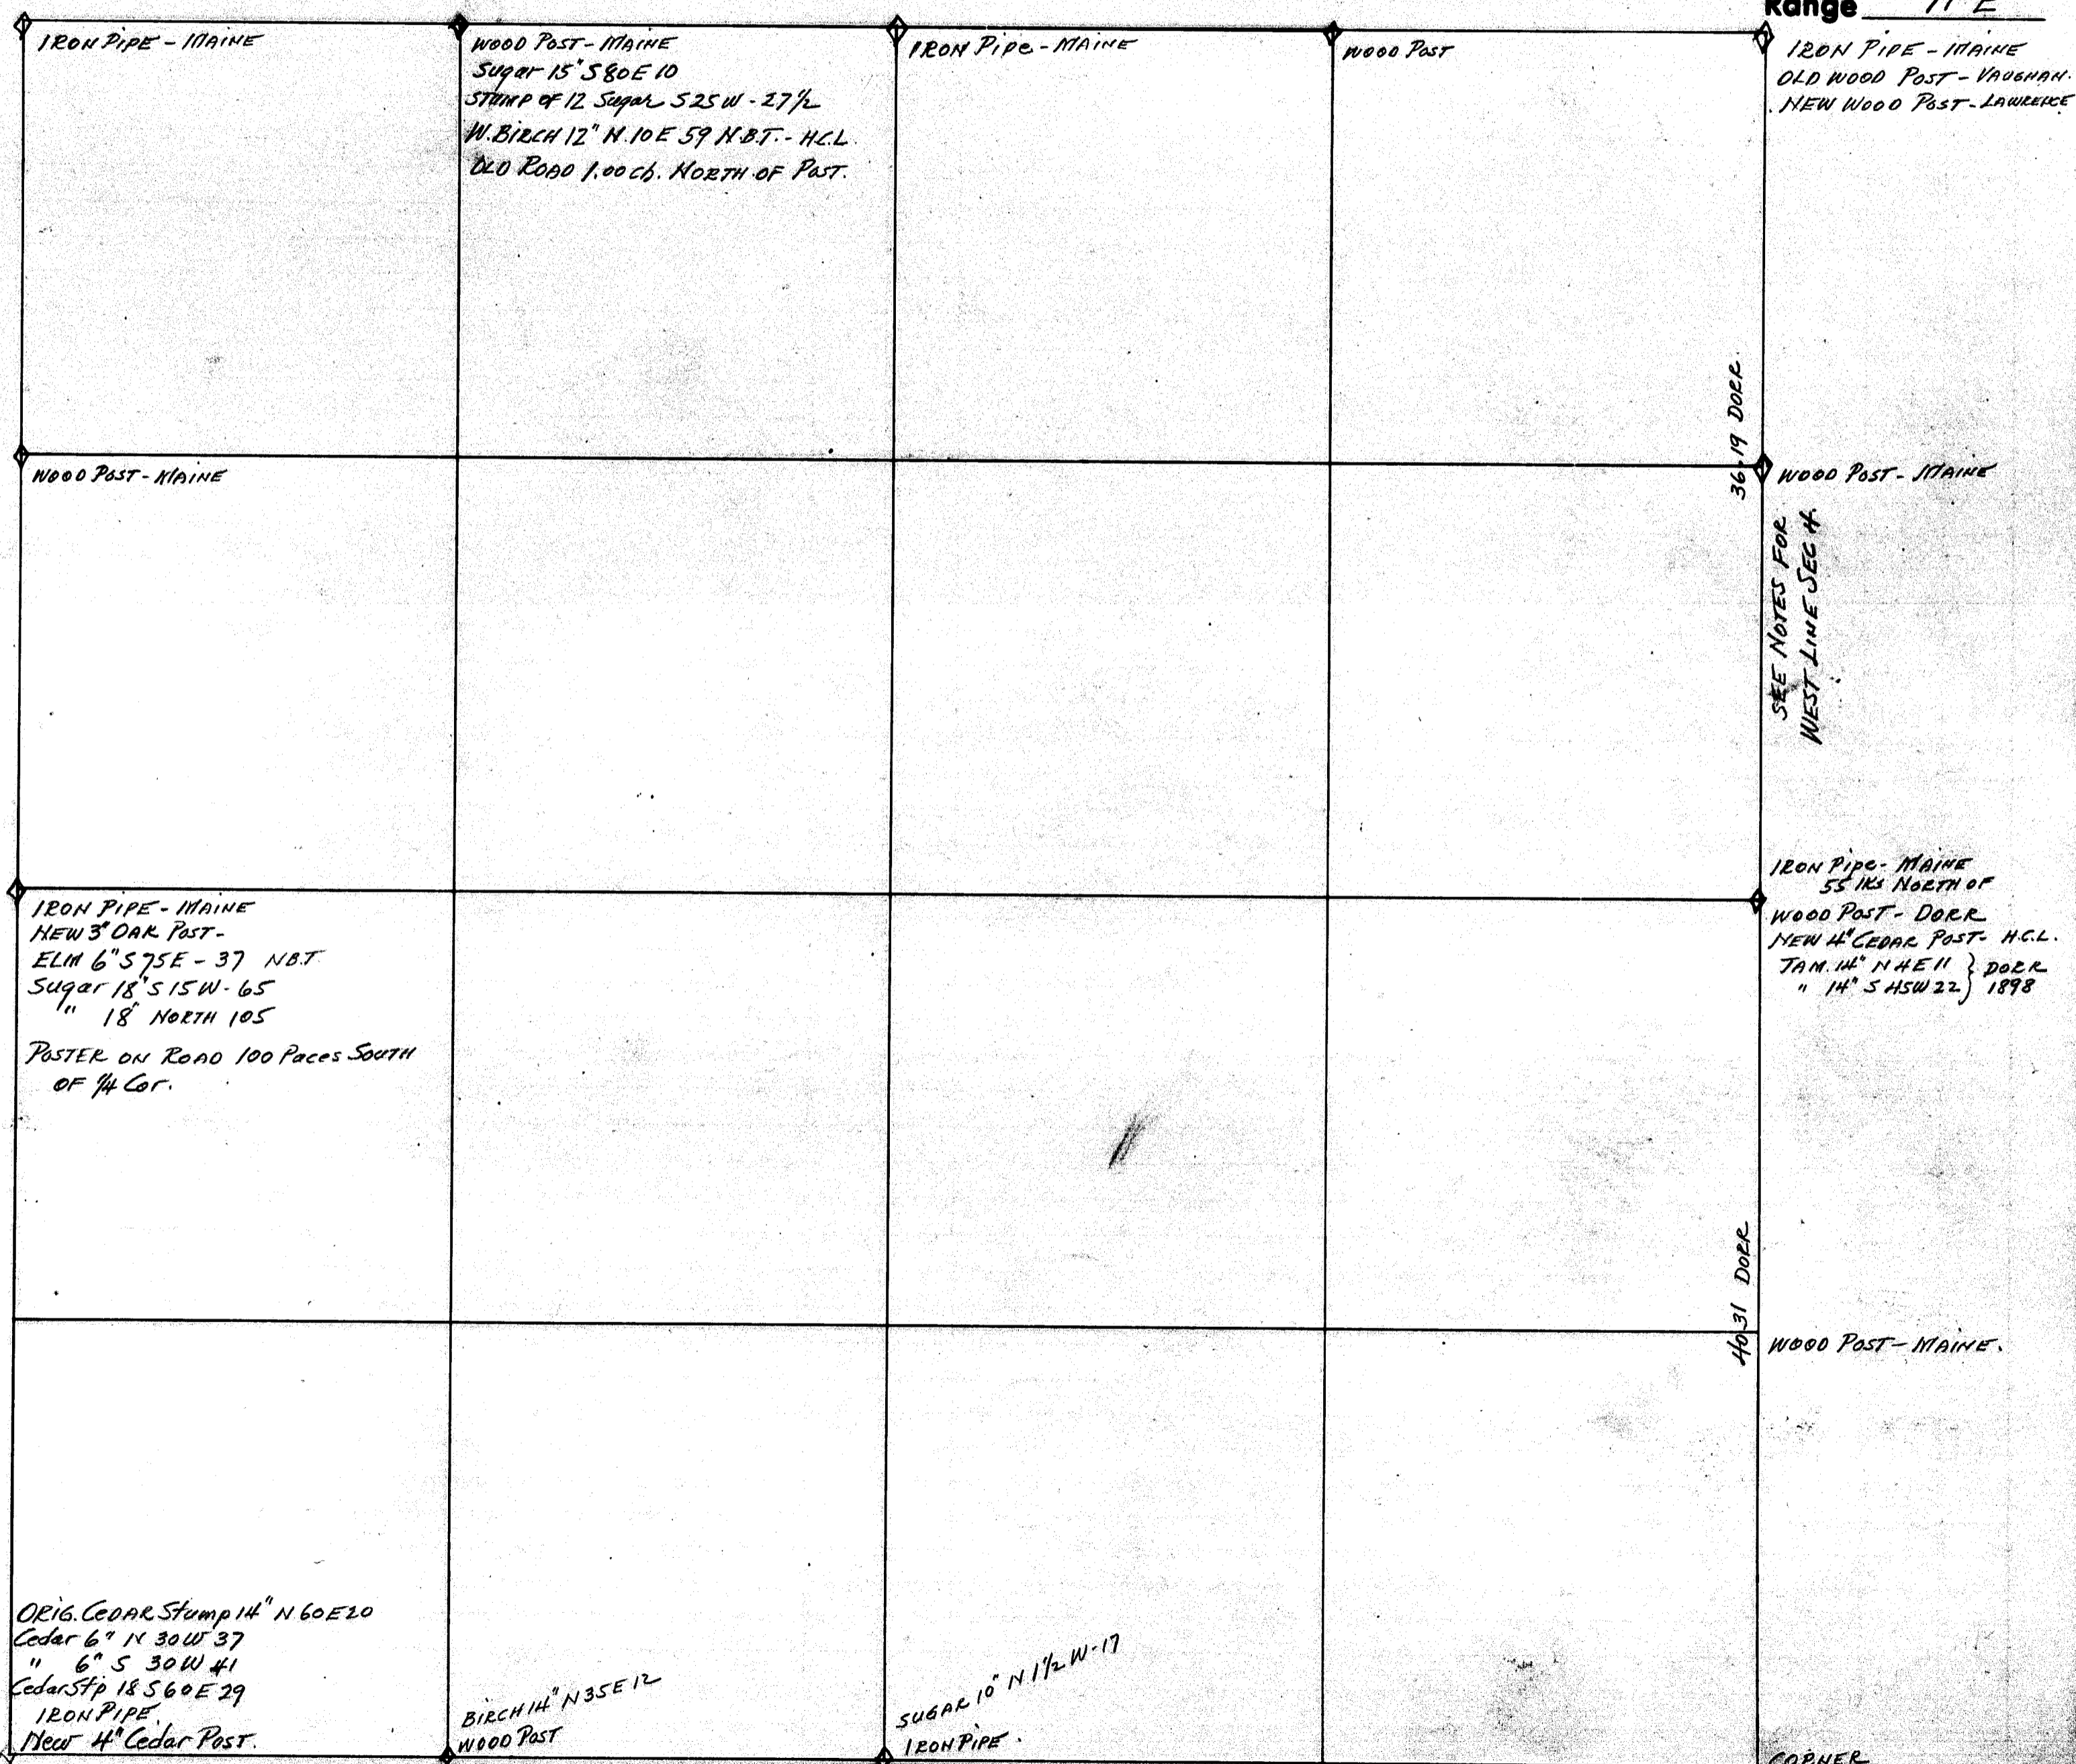 Range 11 E
IRON PIPE - MAINE
WOOD POST - MAINE
Sugar 15" S80E 10
STUMP OF 12 Sugar S25W - 27 1/2
W. BIRCH 12" N. 10E 59 N.B.T. - H.C.L.
OLD ROAD 1.00 ch. NORTH OF POST.
IRON Pipe - MAINE
WOOD POST
IRON PIPE - MAINE
OLD WOOD POST - VAUGHAN.
NEW WOOD POST - LAWRENCE
36.19 DORR.
WOOD POST - MAINE
WOOD POST - MAINE
SEE NOTES FOR
WEST LINE SEC 4.
IRON PIPE - MAINE
NEW 3" OAK POST -
ELM 6" S75E - 37 NBT
Sugar 18" S15W - 65
" 18" NORTH 105
POSTER ON ROAD 100 Paces SOUTH
OF 1/4 Cor.
IRON Pipe - MAINE
55 lks NORTH OF
WOOD POST - DORR
NEW 4" CEDAR POST - H.C.L.
TAM. 14" N4E 11 } DORR
" 14" S45W 22 } 1898
40.31 DORR
WOOD POST - MAINE.
ORIG. CEDAR Stump 14" N60E20
Cedar 6" N 30W 37
" 6" S 30W 41
Cedar Stp 18 S60E 29
IRON PIPE
New 4" Cedar Post.
BIRCH 14" N35E 12
WOOD POST
SUGAR 10" N 1 1/2 W - 17
IRON PIPE.
CORNER